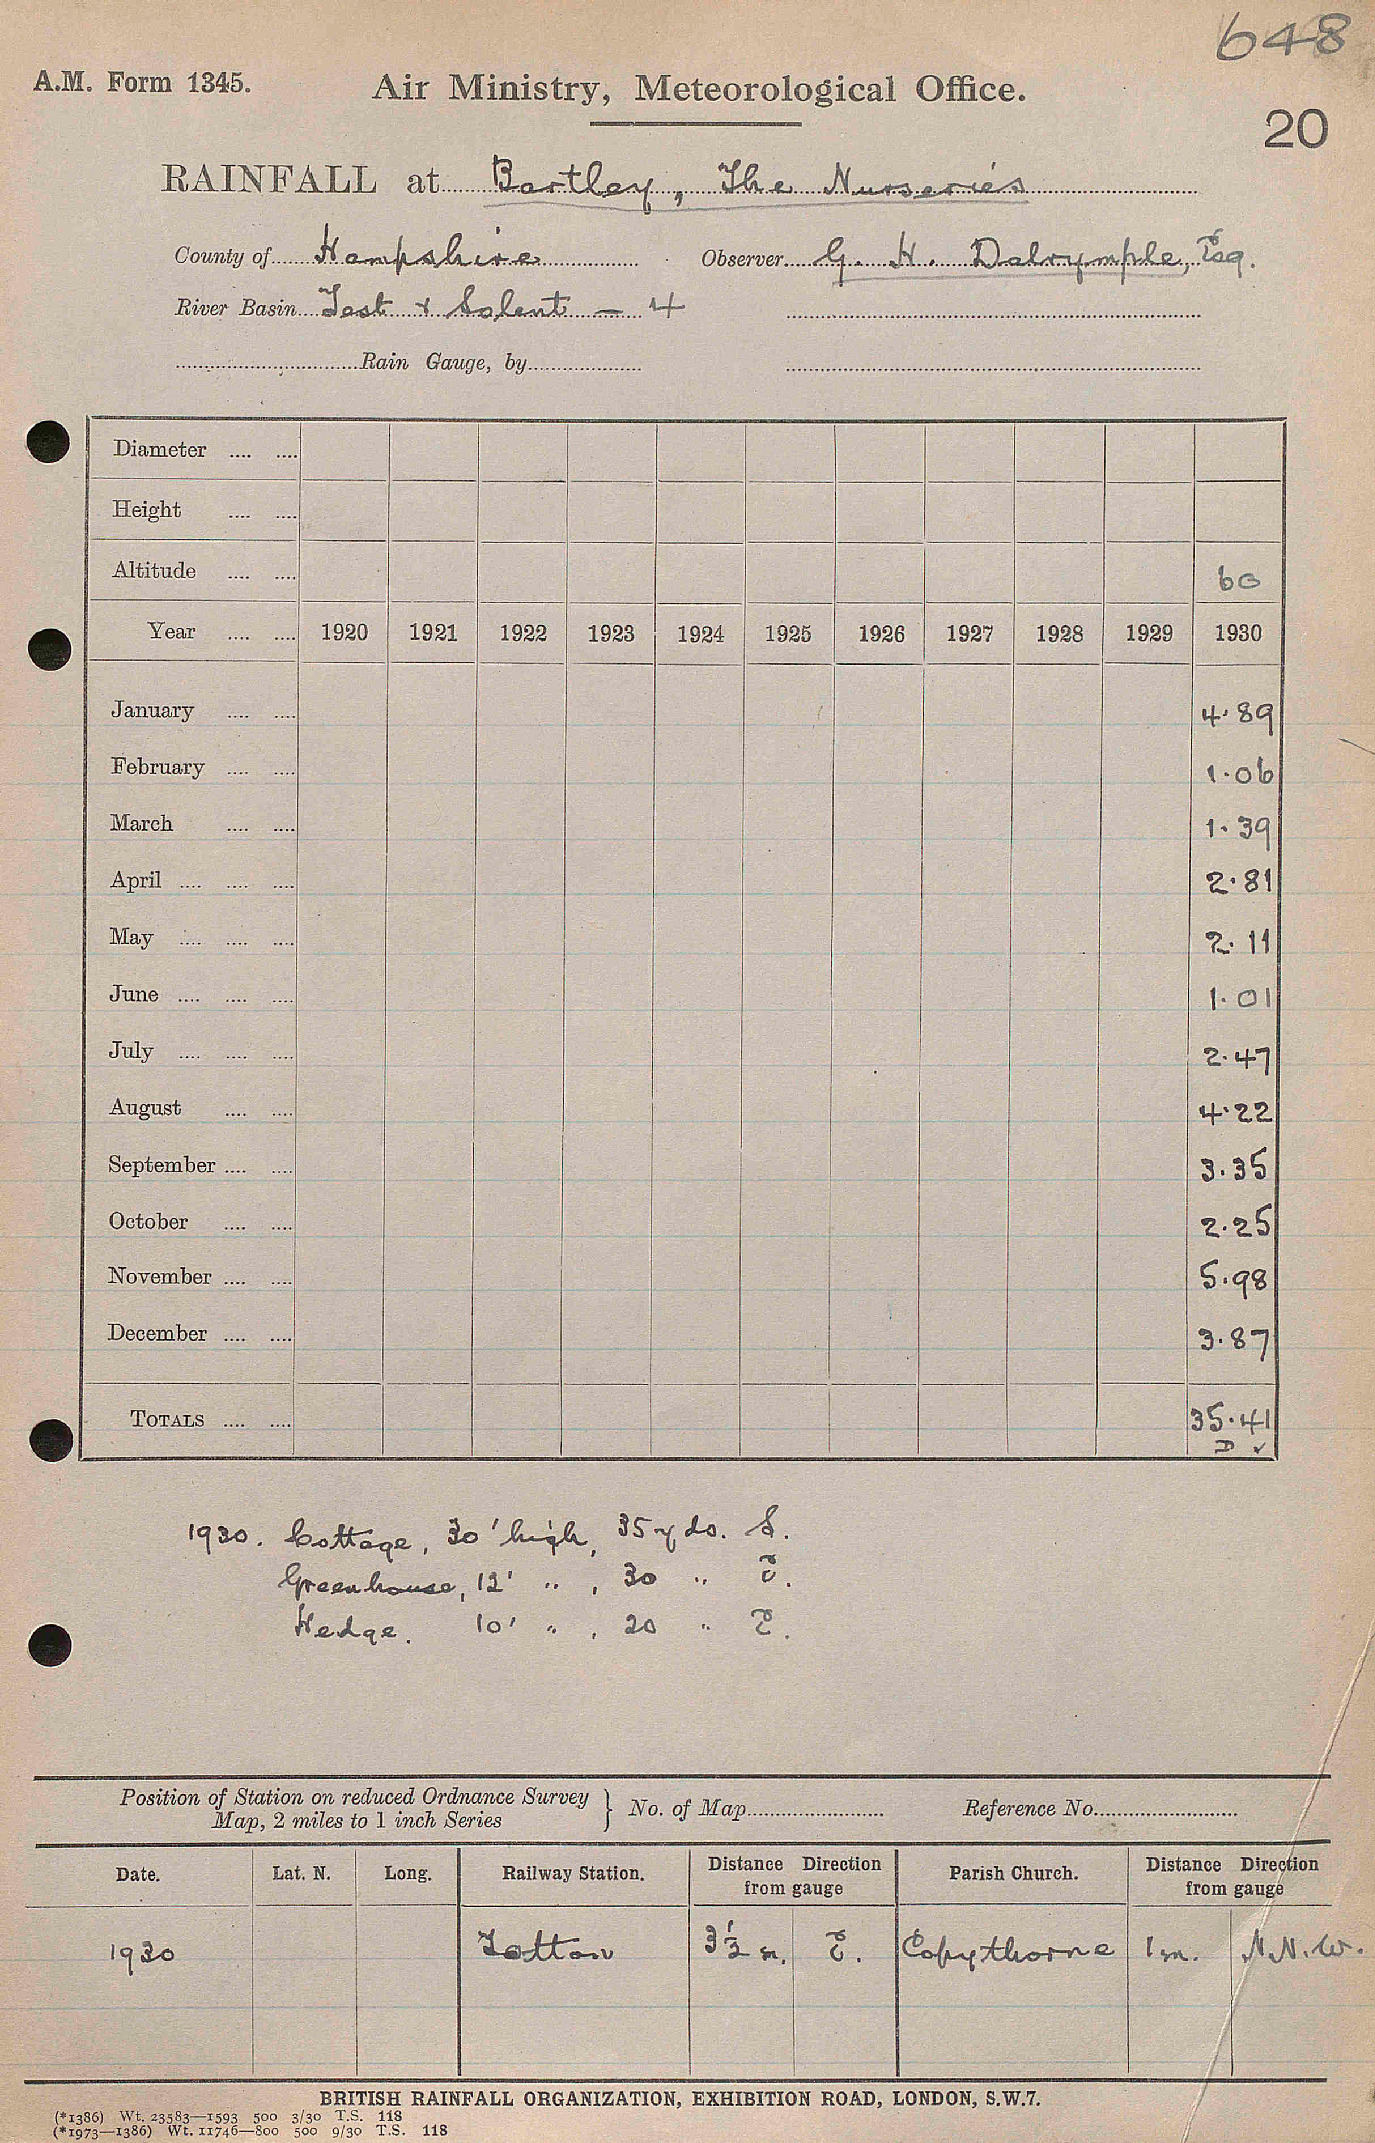 648
A.M. Form 1345. Air Ministry, Meteorological Office.
20
RAINFALL at Bartley, The Nurseries
County of Hampshire Observer G. H. Dalrymple, Esq.
River Basin Test & Solent — 4
Rain Gauge, by
Diameter .... ....
Height .... ....
Altitude .... .... 60
Year .... .... 1920 1921 1922 1923 1924 1925 1926 1927 1928 1929 1930
January .... .... 4.89
February .... .... 1.06
March .... .... 1.39
April .... .... .... 2.81
May .... .... .... 2.11
June .... .... .... 1.01
July .... .... .... 2.47
August .... .... 4.22
September .... .... 3.35
October .... .... 2.25
November .... .... 5.98
December .... .... 3.87
TOTALS .... .... 35.41
D ✓
1930. Cottage, 30' high, 35 yds. S.
Greenhouse, 12' " , 30 " E.
Hedge. 10' " , 20 " E.
Position of Station on reduced Ordnance Survey
Map, 2 miles to 1 inch Series } No. of Map Reference No.
Date. Lat. N. Long. Railway Station. Distance Direction from gauge Parish Church. Distance Direction from gauge
1930 Totton 3½ m. E. Copythorne 1 m. N.N.W.
BRITISH RAINFALL ORGANIZATION, EXHIBITION ROAD, LONDON, S.W.7.
(*1386) Wt. 23583—1593 500 3/30 T.S. 118
(*1973—1386) Wt. 11746—800 500 9/30 T.S. 118